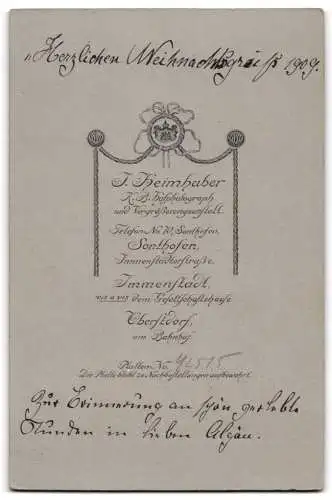 „Herzlichen Weihnachtsgruß 1909.
J. Heimhuber
K. B. Hofphotograph
und Vergrösserungsanstalt.
Telefon No. 10, Sonthofen.
Sonthofen,
Immenstädterstraße.
Immenstadt,
vis a vis dem Gesellschaftshause
Oberstdorf,
am Bahnhof
Platten No. 42515
Die Platte bleibt zu Nachbestellungen aufbewahrt.
Zur Erinnerung an schön gerlebte
Stunden im lieben Algäu.